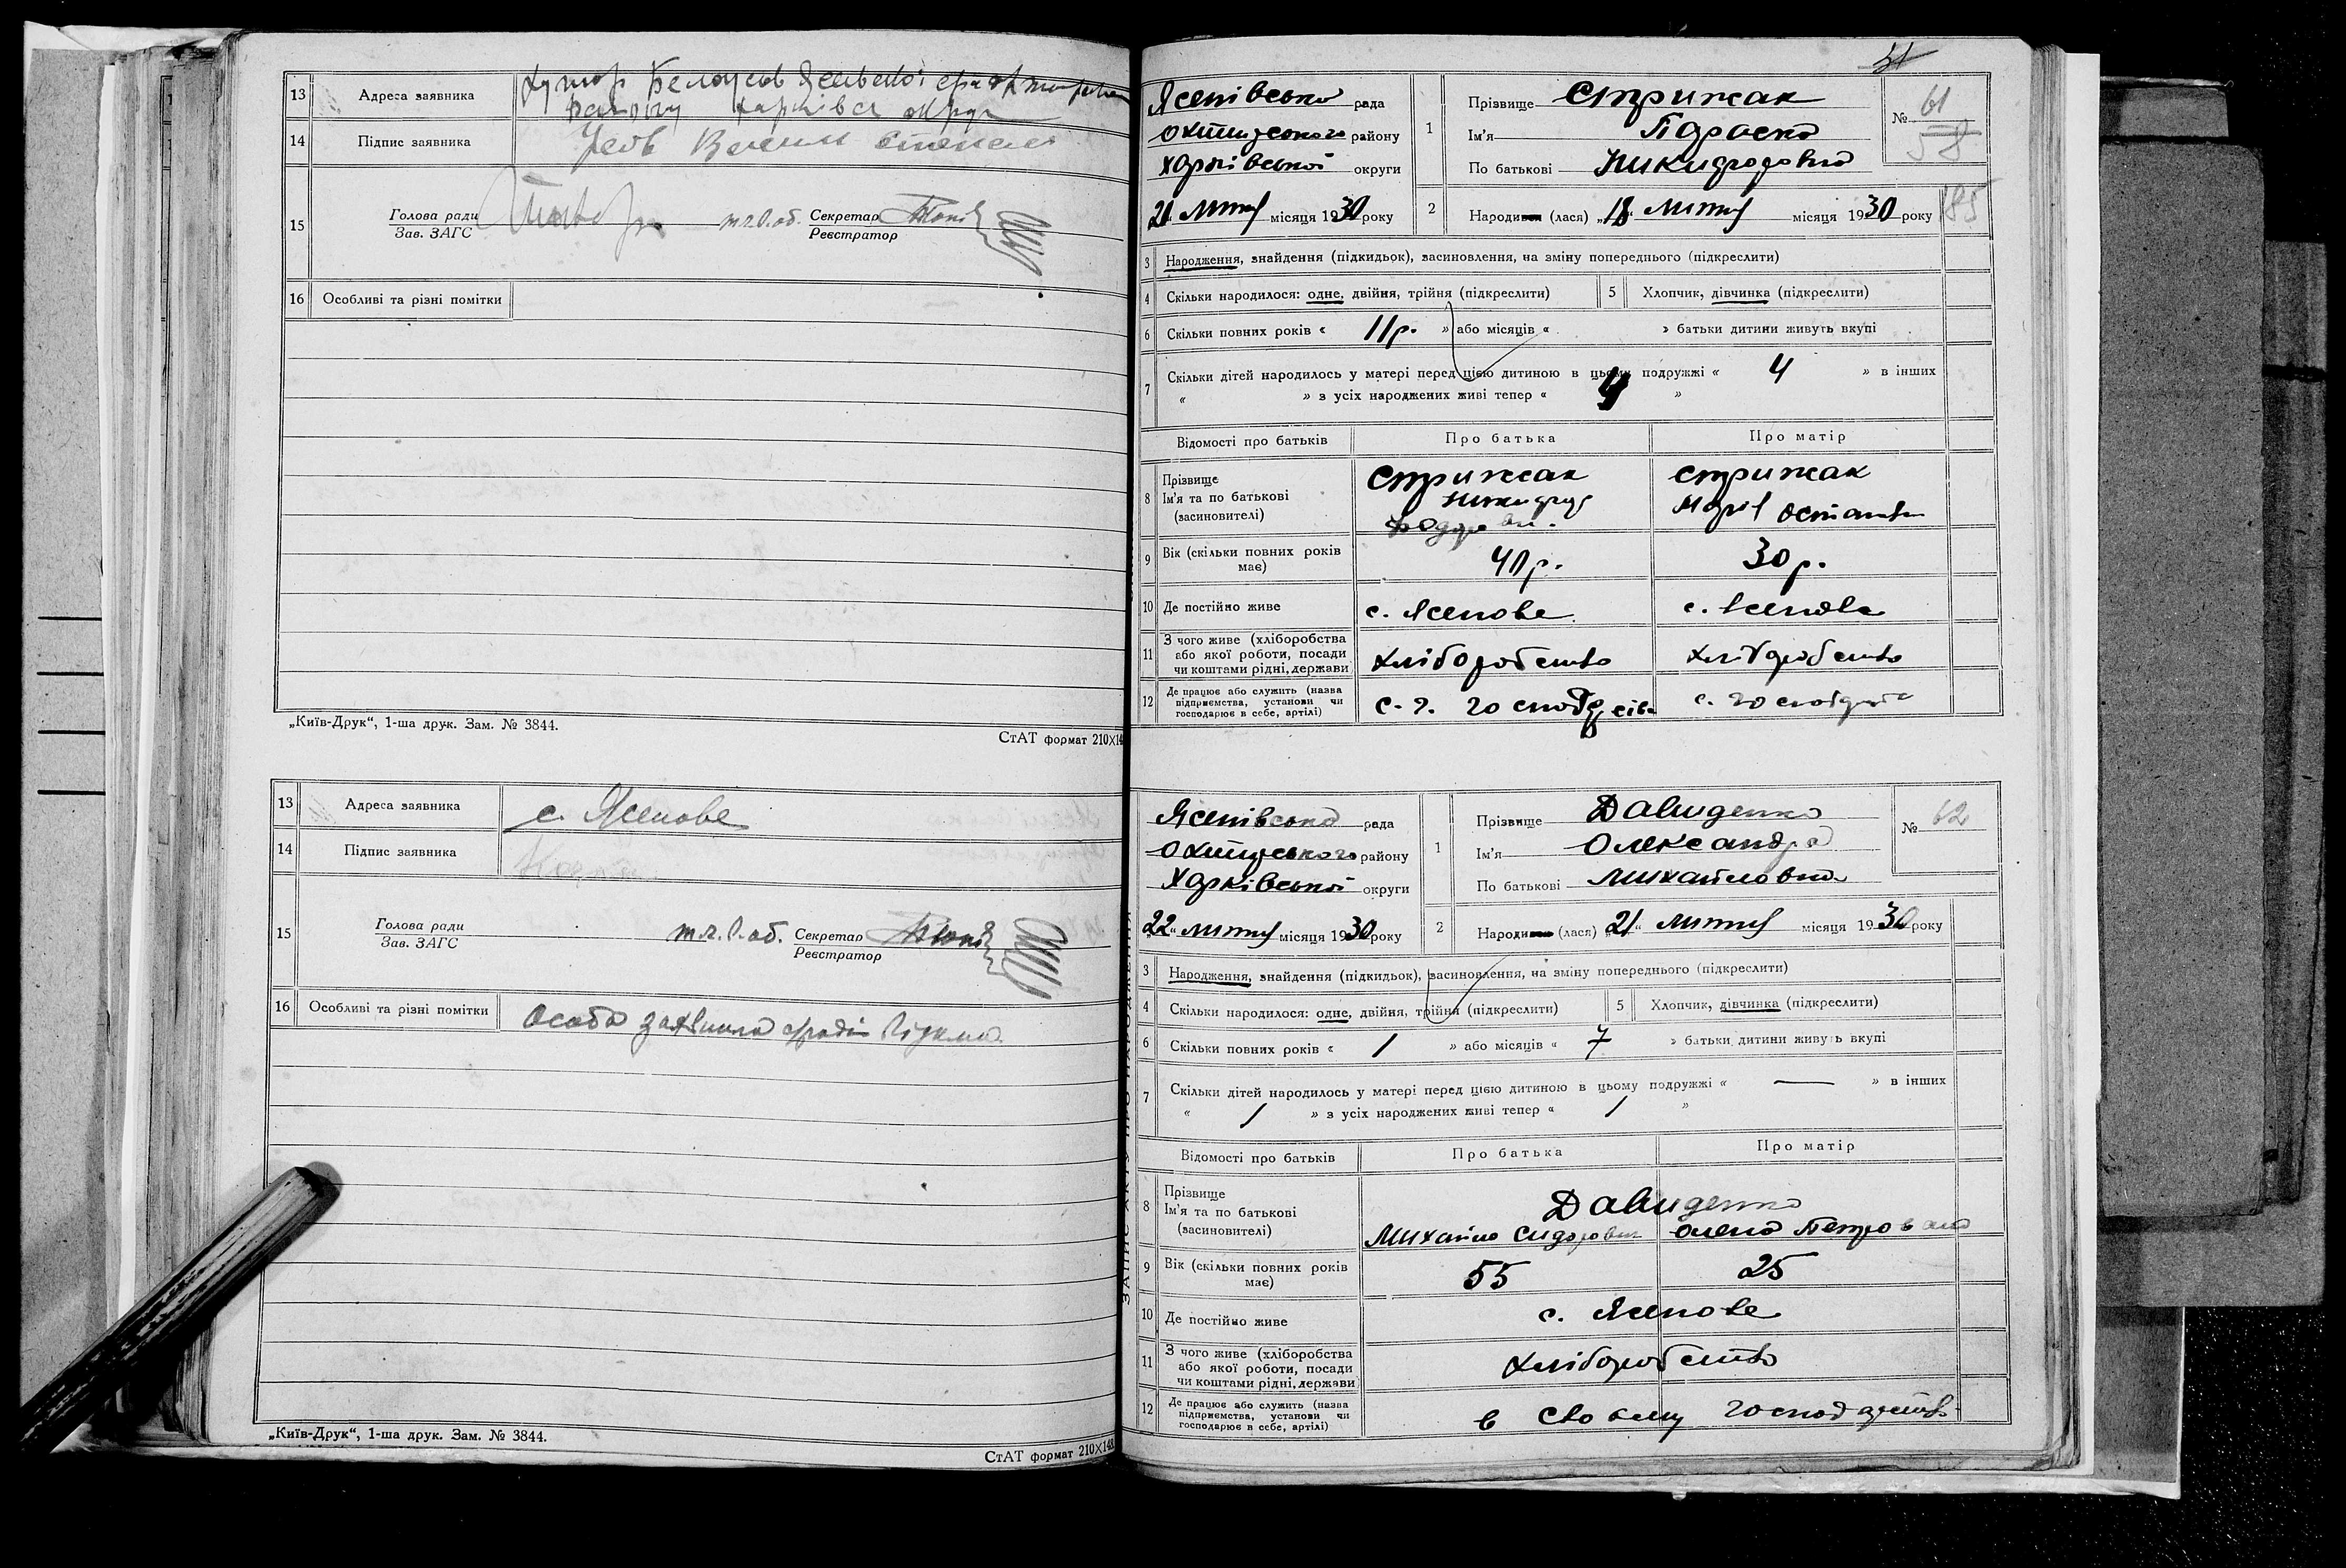 13 Адреса заявника хутор
14 Підпис заявника
15 Голова ради
Зав. ЗАГС
т.г.о.об. Секретар
Реєстратор
16 Особливі та різні помітки
„Київ-Друк“, 1-ша друк. Зам. № 3844.
СтАТ формат 210X14
13 Адреса заявника с. Ясенове
14 Підпис заявника
15 Голова ради
Зав. ЗАГС
Секретар
Реєстратор
16 Особливі та різні помітки Особа
„Київ-Друк“, 1-ша друк. Зам. № 3844.
СтАТ формат 210X148
Ясенівсько рада
Охтирського району
Харківської округи
21 лютня місяця 1930 року
1 Прізвище Стрижак
Ім'я Параска
По батькові Никифоровна
№ 61
58
2 Народився (лася) „18“ лютня місяця 1930 року
185
3 Народження, знайдення (підкидьок), засиновлення, на зміну попереднього (підкреслити)
4 Скільки народилося: одне, двійня, трійня (підкреслити) 5 Хлопчик, дівчинка (підкреслити)
6 Скільки повних років « 11р. » або місяців « » батьки дитини живуть вкупі
7 Скільки дітей народилось у матері перед цією дитиною в цьому подружжі « 4 » в інших
« » з усіх народжених живі тепер « 4 »
Відомості про батьків Про батька Про матір
8 Прізвище
Ім'я та по батькові
(засиновителі)
Стрижак
Никифор
Стрижак
Марія
9 Вік (скільки повних років
має) 40 р. 30 р.
10 Де постійно живе с. Ясенове с. Ясенове
11 З чого живе (хліборобства
або якої роботи, посади
чи коштами рідні, держави) хліборобство хліборобство
12 Де працює або служить (назва
підприємства, установи чи
господарює в себе, артілі) с. г.
Ясенівська рада
Охтирського району
Харківської округи
„22“ лютня місяця 1930 року
1 Прізвище Давиденко
Ім'я Олександра
По батькові Михайловна
№ 62
2 Народився (лася) „21“ лютня місяця 1930 року
3 Народження, знайдення (підкидьок), засиновлення, на зміну попереднього (підкреслити)
4 Скільки народилося: одне, двійня, трійня (підкреслити) 5 Хлопчик, дівчинка (підкреслити)
6 Скільки повних років « 1 » або місяців « 7 » батьки дитини живуть вкупі
7 Скільки дітей народилось у матері перед цією дитиною в цьому подружжі « — » в інших
« 1 » з усіх народжених живі тепер « 1 »
Відомості про батьків Про батька Про матір
8 Прізвище
Ім'я та по батькові
(засиновителі)
Давиденко
Михайло Сидорович Олена Петровна
9 Вік (скільки повних років
має) 55 25
10 Де постійно живе с. Ясенове
11 З чого живе (хліборобства
або якої роботи, посади
чи коштами рідні, держави) хліборобство
12 Де працює або служить (назва
підприємства, установи чи
господарює в себе, артілі) в своему господарстві